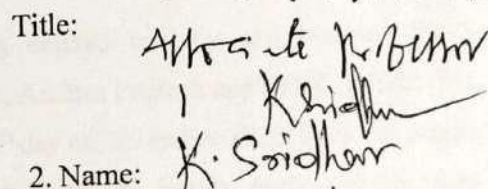 Title: Associate Professor
1 KSridhar
2. Name: K. Sridhar